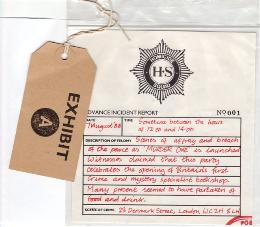 H·S
ADVANCE INCIDENT REPORT Nº001
DATE TIME Sometime between the hours
7 August '88 of 12.00 and 14.00
DESCRIPTION OF FELONY Scenes of affray and breach
of the peace as 'MURDER ONE' is launched
Witnesses claimed that this party
celebrates the opening of Britain's first
crime and mystery specialist bookshop.
Many present seemed to have partaken of
food and drink.
SCENE OF CRIME 23 Denmark Street, London, WC2H 8LN
EXHIBIT
A